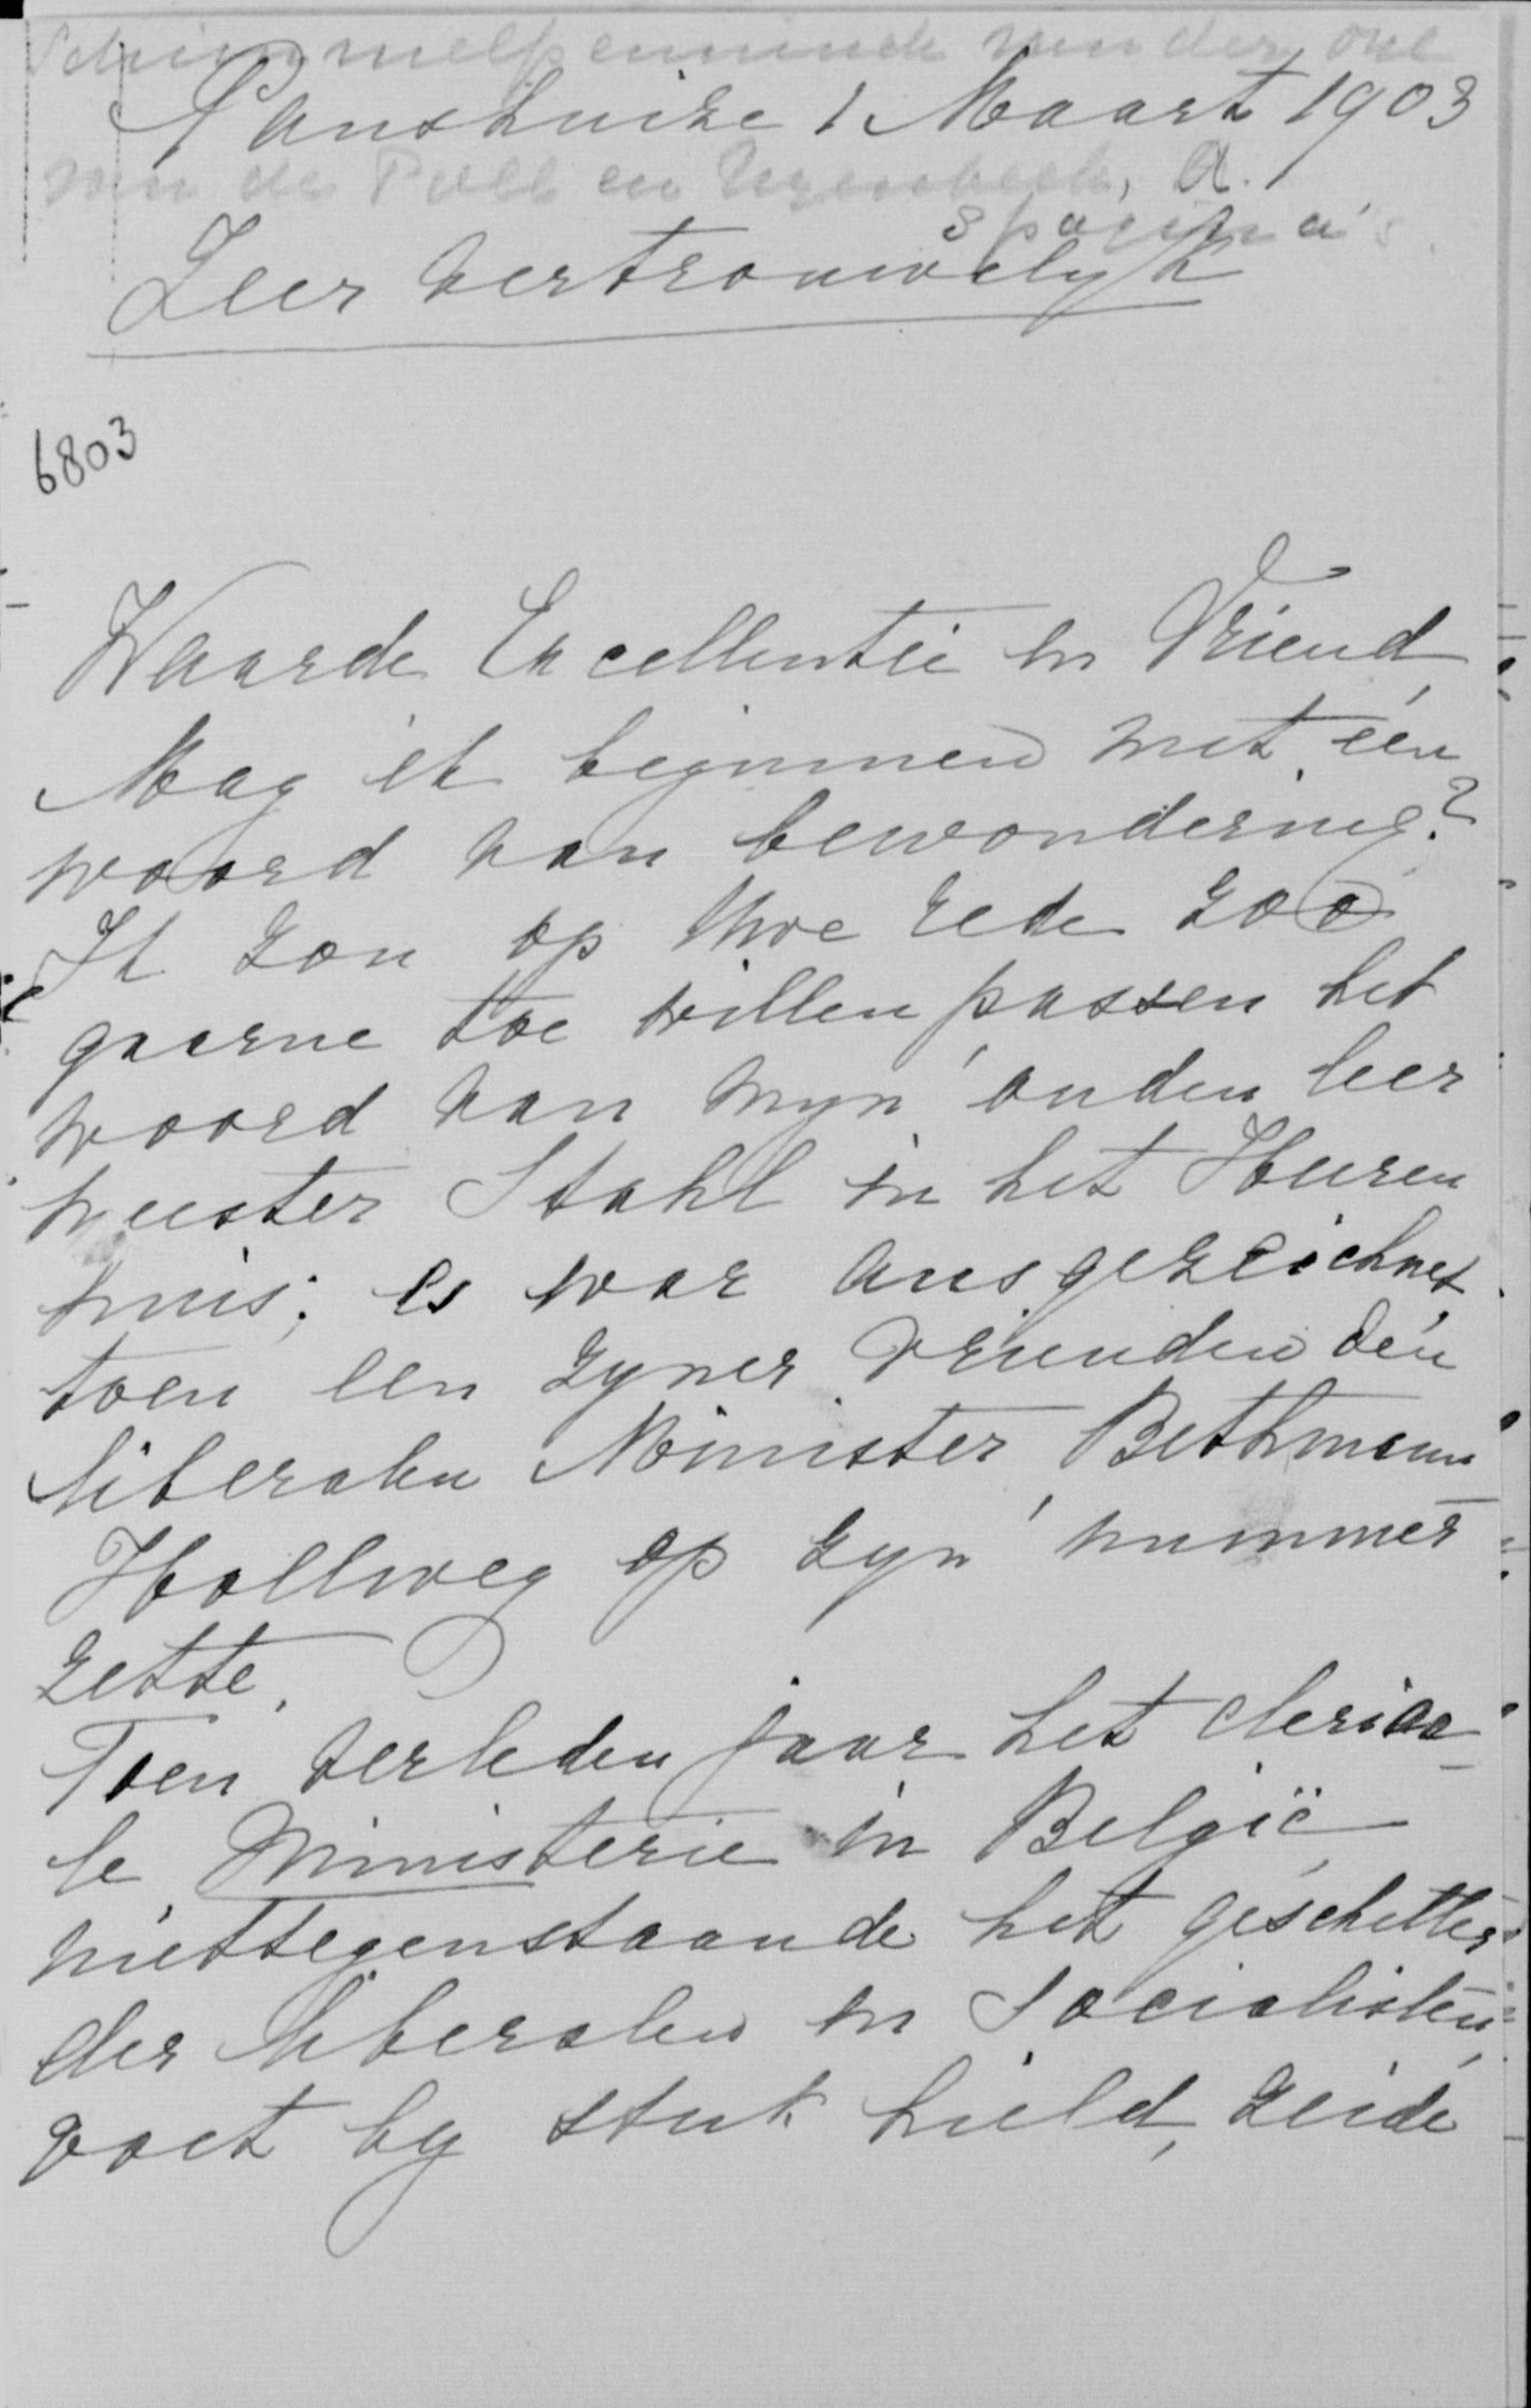 Schimmelpenninck van der Oye
Panshuize 1 Maart 1903
van de Poll en , A.
3 pagina's
Zeer Vertrouwelyk
6803
Waarde Excellentie en Vriend,
Mag ik beginnen met één
woord van bewondering?
Ik zou op Uwe rede zoo
gaarne toe willen passen het
woord van myn' ouden leer
meester Stahl in het Heeren
huis; es war ausgezeichnet,
toen een zyner Vrienden den
liberalen Minister Bethmann
Hollweg op zyn' nummer
zette.
Toen verleden jaar het clerica-
le Ministerie in België,
niettegenstaande het geschetter
der liberalen en Socialisten,
voet by stuk hield, zeide